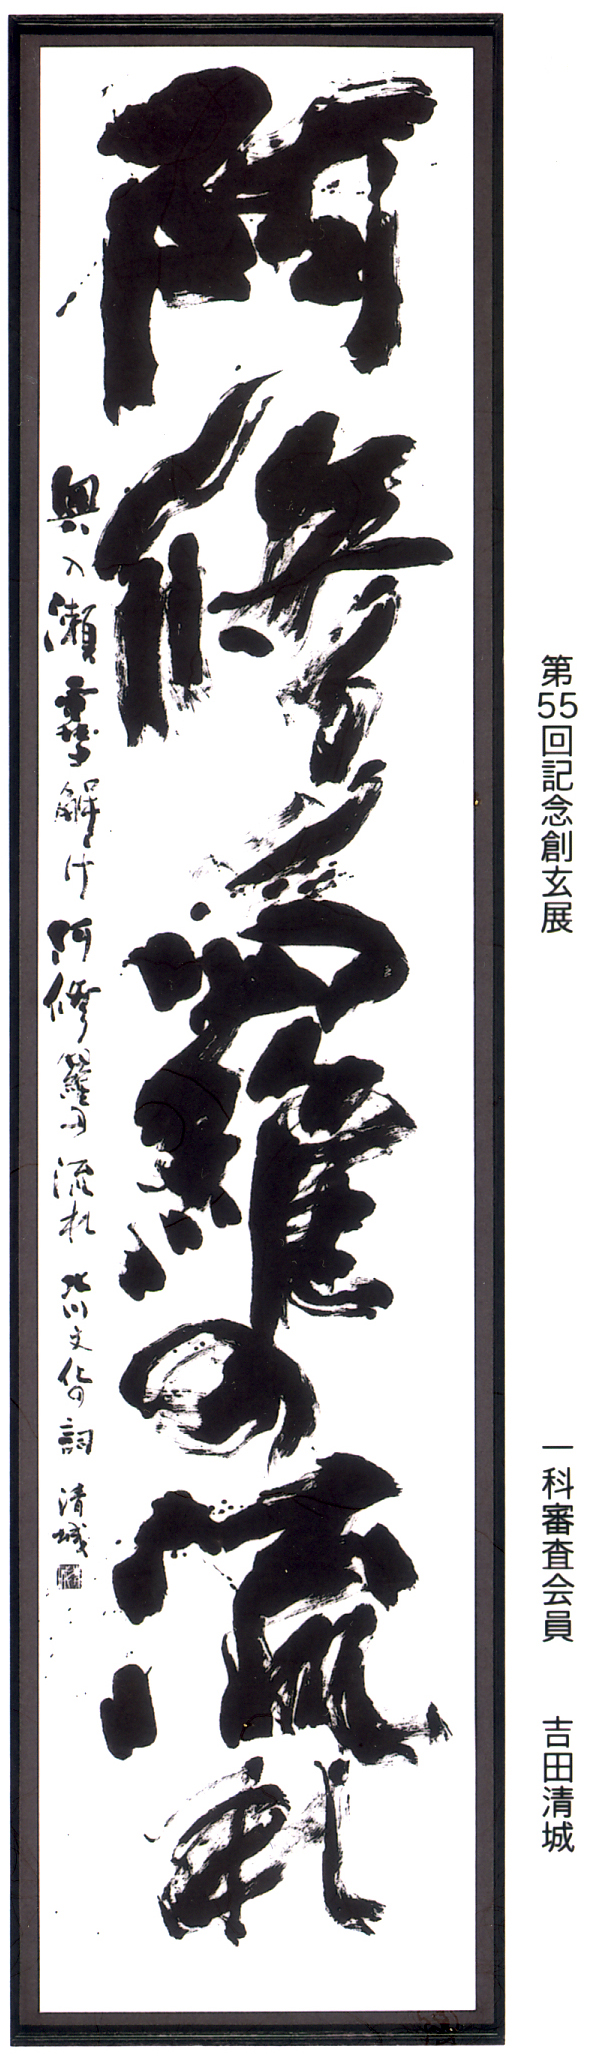 第55回記念創玄展
一科審査会員 吉田清城
阿修羅の流れ
奥入瀬雪解け阿修羅の流れ 北川文化の詞 清城